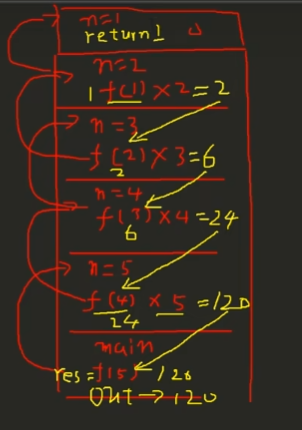 n=1
return 1
n=2
1 f(1) × 2 = 2
n=3
f(2) × 3 = 6
2
n=4
f(3) × 4 = 24
6
n=5
f(4) × 5 = 120
24
main
res = f(5) 120
Out → 120